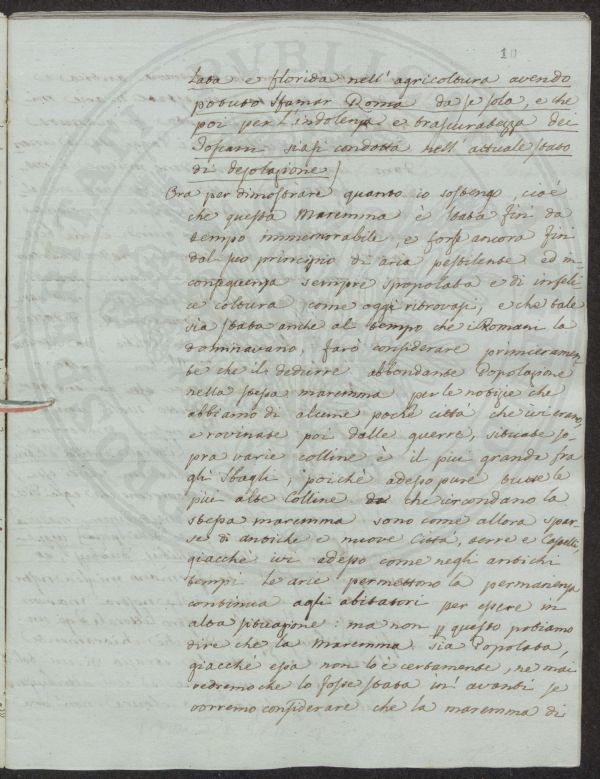 10
tata e florida nell' agricoltura avendo
potuto sfamar Roma da se sola, e che
poi per l'indolenza e trascuratezza dei
Toscani siasi condotta nell' attuale stato
di desolazione)
Ora per dimostrare quanto io sostengo, cioè
che questa Maremma è stata fin da
tempo immemorabile, e forse ancora fin
dal suo principio di aria pestilente ed in
conseguenza sempre spopolata e di infeli
ce coltura come oggi ritrovasi, e che tale
sia stata anche al tempo che i Romani la
dominavano, farò considerare primieramen
te che il dedurre abbondante Popolazione
nella stessa maremma per le notizie che
abbiamo di alcune poche città che ivi erano,
e rovinate poi dalle guerre, situate so
pra varie colline è il più grande fra
gli Sbagli; poichè adesso pure tutte le
più alte Colline che circondano la
stessa maremma sono come allora spar
se di antiche e nuove Città, terre e Castelli,
giacchè ivi adesso come negli antichi
tempi le arie permettono la permanenza
continua agli abitatori per essere in
alta situazione: ma non p questo potiamo
dire che la Maremma sia Popolata,
giacchè essa non lo è certamente, ne mai
vedremo che lo fosse stata in avanti se
vorremo considerare che la maremma di
PVBLICAE
PROSPERITATI